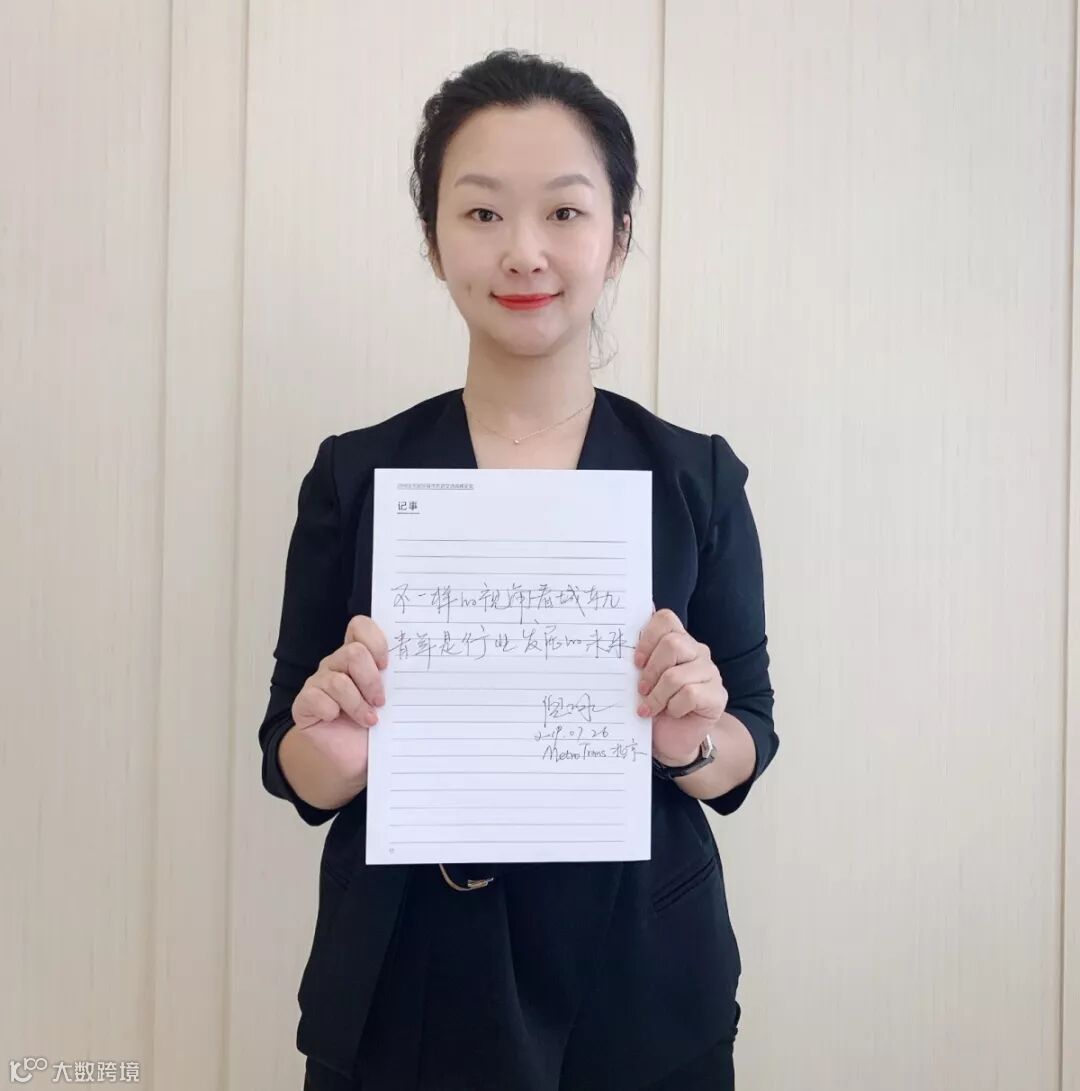 记事
不一样的视角看城轨
青年是行业发展的未来
2019.07.26
MetroTrans 北京
大数跨境